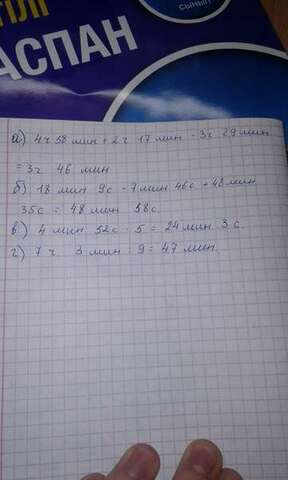 ТІЛІ
АСПАН
СЫНЫП
а) 4ч 58 мин + 2ч 17 мин - 3ч 29 мин
= 3ч 46 мин
б) 18 мин 9с - 7 мин 46с + 48 мин
35с = 48 мин 58с.
в) 4 мин 52с · 5 = 24 мин 3с.
г) 7ч 3 мин : 9 = 47 мин.